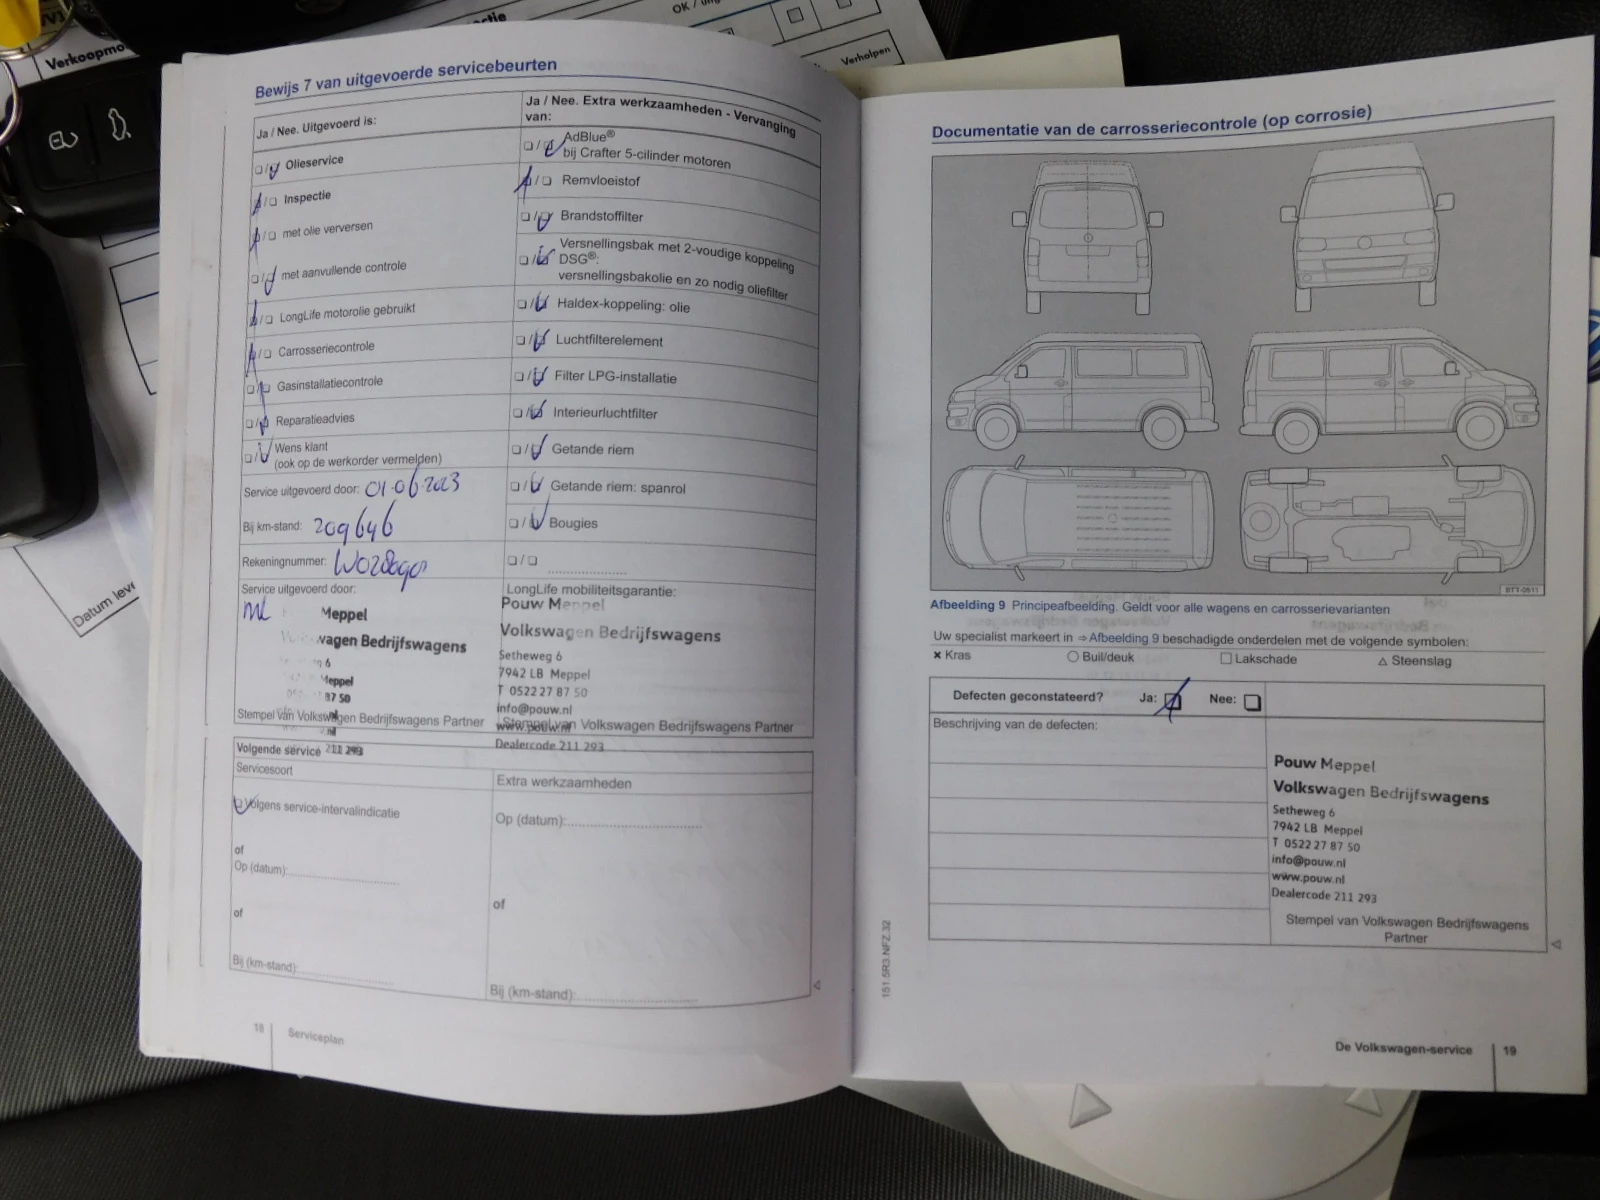 Verkoopmo
OK /
Verholpen
Datum leve
Bewijs 7 van uitgevoerde servicebeurten
Ja / Nee. Uitgevoerd is:
Olieservice
Inspectie
met olie verversen
met aanvullende controle
LongLife motorolie gebruikt
Carrosseriecontrole
Gasinstallatiecontrole
Reparatieadvies
Wens klant
(ook op de werkorder vermelden)
Service uitgevoerd door: 01-06-2023
Bij km-stand: 209646
Rekeningnummer:
Service uitgevoerd door:
Meppel
wagen Bedrijfswagens
6
Meppel
87 50
Stempel van Volkswagen Bedrijfswagens Partner
Ja / Nee. Extra werkzaamheden - Vervanging
van:
AdBlue®
bij Crafter 5-cilinder motoren
Remvloeistof
Brandstoffilter
Versnellingsbak met 2-voudige koppeling
DSG®:
versnellingsbakolie en zo nodig oliefilter
Haldex-koppeling: olie
Luchtfilterelement
Filter LPG-installatie
Interieurluchtfilter
Getande riem
Getande riem: spanrol
Bougies
LongLife mobiliteitsgarantie:
Pouw Meppel
Volkswagen Bedrijfswagens
Setheweg 6
7942 LB Meppel
T 0522 27 87 50
info@pouw.nl
www.pouw.nl
Stempel van Volkswagen Bedrijfswagens Partner
Dealercode 211 293
Volgende service 211 293
Servicesoort
Volgens service-intervalindicatie
of
Op (datum):
of
Bij (km-stand):
Extra werkzaamheden
Op (datum):
of
Bij (km-stand):
18 Serviceplan
Documentatie van de carrosseriecontrole (op corrosie)
BTT-0511
Afbeelding 9 Principeafbeelding. Geldt voor alle wagens en carrosserievarianten
Uw specialist markeert in ⇒ Afbeelding 9 beschadigde onderdelen met de volgende symbolen:
× Kras ○ Buil/deuk □ Lakschade △ Steenslag
Defecten geconstateerd? Ja: Nee:
Beschrijving van de defecten:
Pouw Meppel
Volkswagen Bedrijfswagens
Setheweg 6
7942 LB Meppel
T 0522 27 87 50
info@pouw.nl
www.pouw.nl
Dealercode 211 293
Stempel van Volkswagen Bedrijfswagens
Partner
151.5R3.NFZ.32
De Volkswagen-service 19